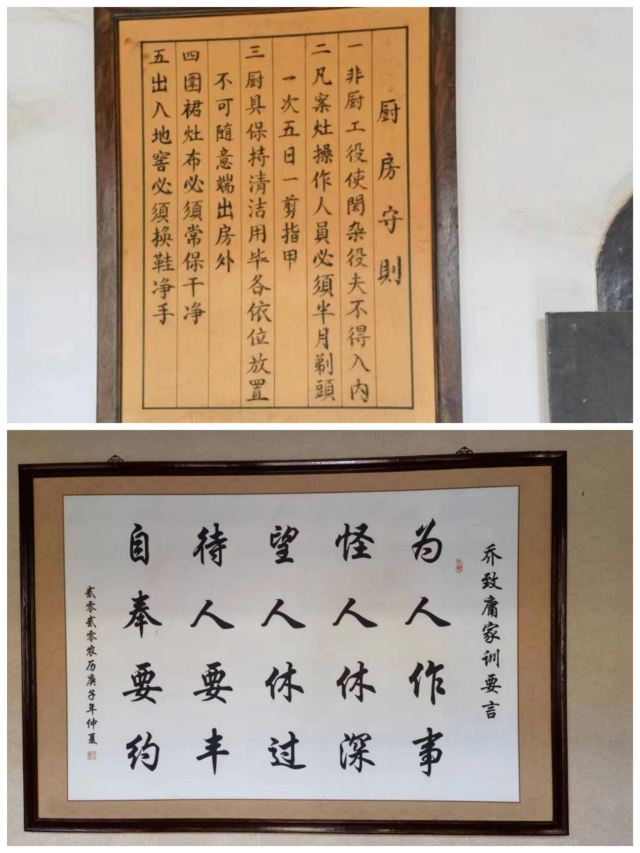 厨房守則
一非厨工役使閑杂役夫不得入内
二凡案灶操作人員必須半月剃頭
一次五日一剪指甲
三厨具保持清洁用毕各依位放置
不可隨意端出房外
四围裙灶布必須常保干净
五出入地窖必須换鞋净手
乔致庸家训要言
为人作事
怪人休深
望人休过
待人要丰
自奉要约
贰零贰零农历庚子年仲夏